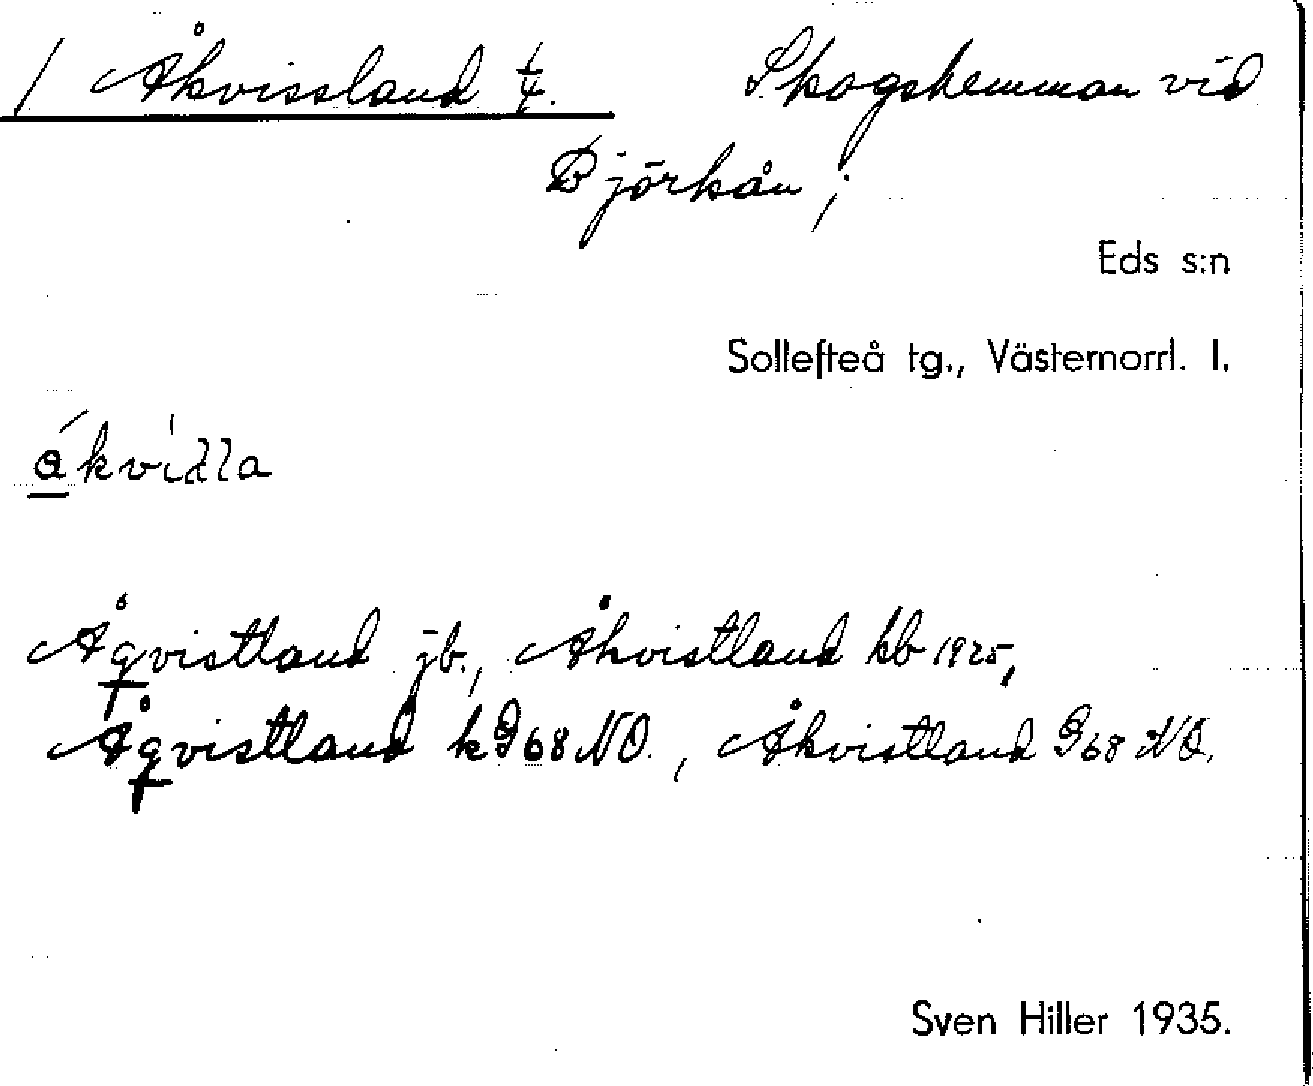 / Åkvissland Skogshemman vid
Björkån;
Eds s:n
Sollefteå tg., Västernorrl. l.
Åqvistland jb., Åkvistland kb 1925,
Åqvistland k G 68 NO., Åkvistland G 68 NO.
Sven Hiller 1935.